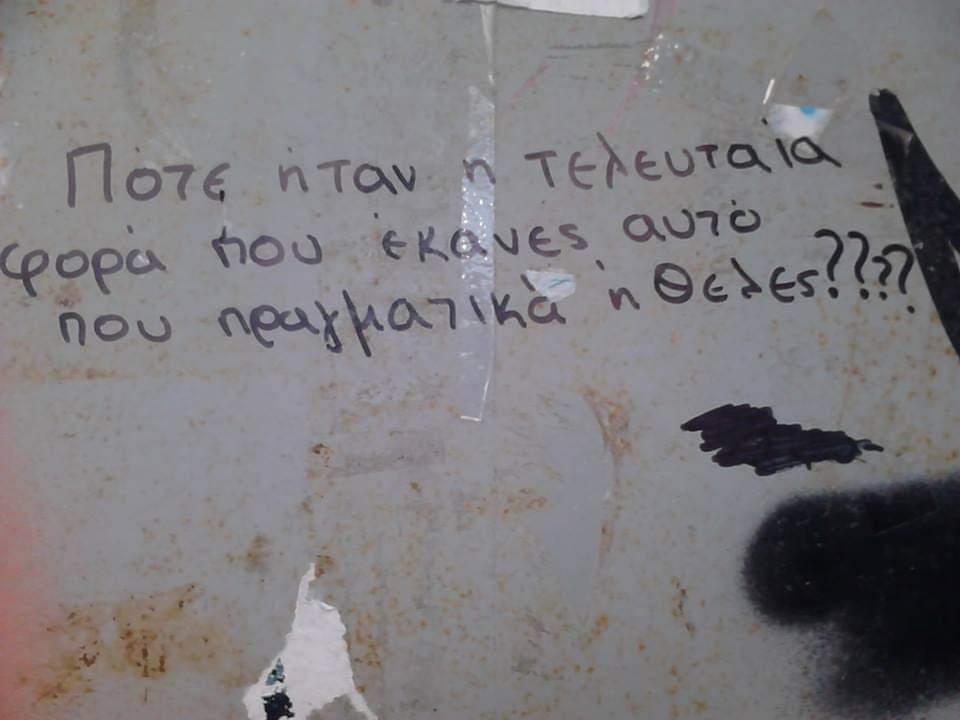 Πότε ήταν η τελευταία
φορά που έκανες αυτό
που πραγματικά ήθελες????